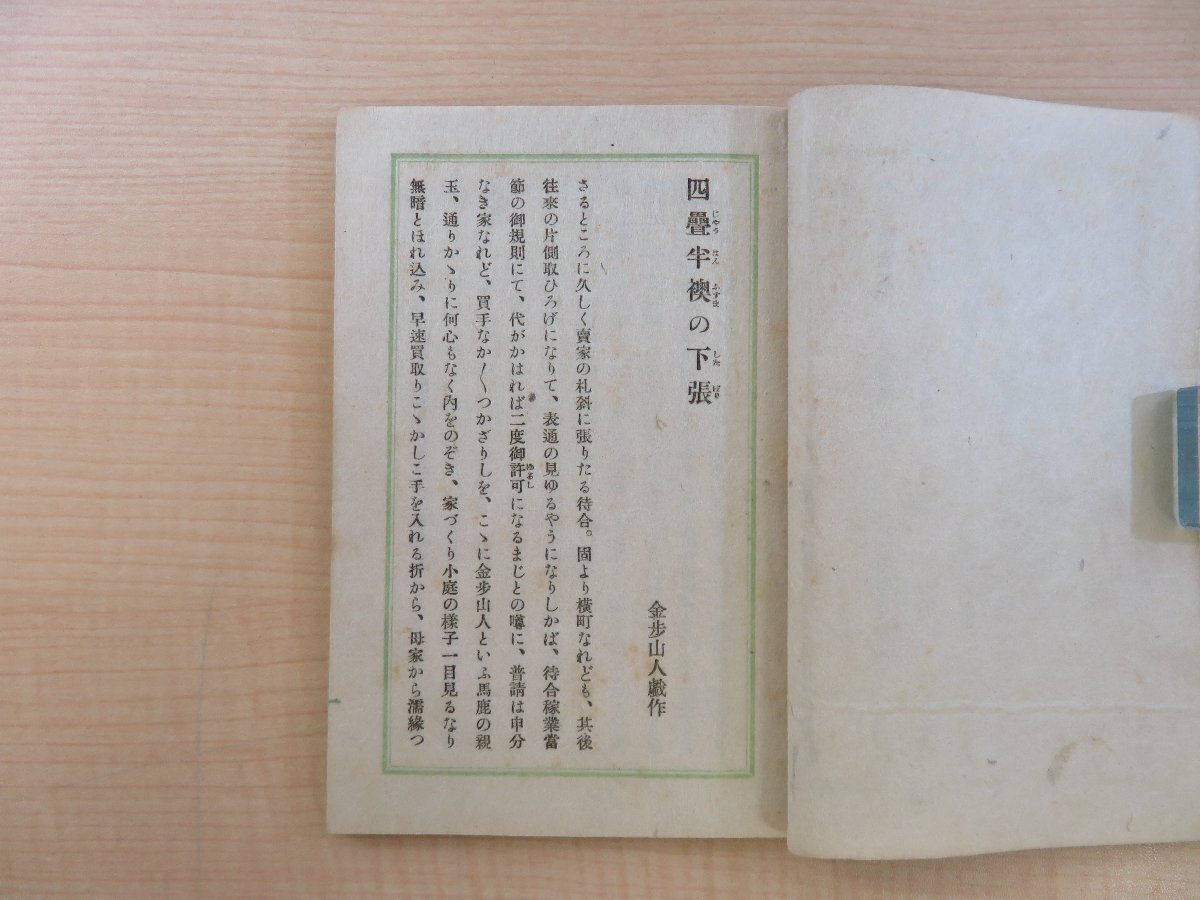 四疊半襖の下張
金步山人戯作
さるところに久しく賣家の札斜に張りたる待合。固より横町なれども、其後
往來の片側取ひろげになりて、表通の見ゆるやうになりしかば、待合稼業當
節の御規則にて、代がかはれば二度御許可になるまじとの噂に、普請は申分
なき家なれど、買手なか〱つかざりしを、こゝに金步山人といふ馬鹿の親
玉、通りかゝりに何心もなく內をのぞき、家づくり小庭の樣子一目見るなり
無暗とほれ込み、早速買取りこゝかしこ手を入れる折から、母家から濡緣つ